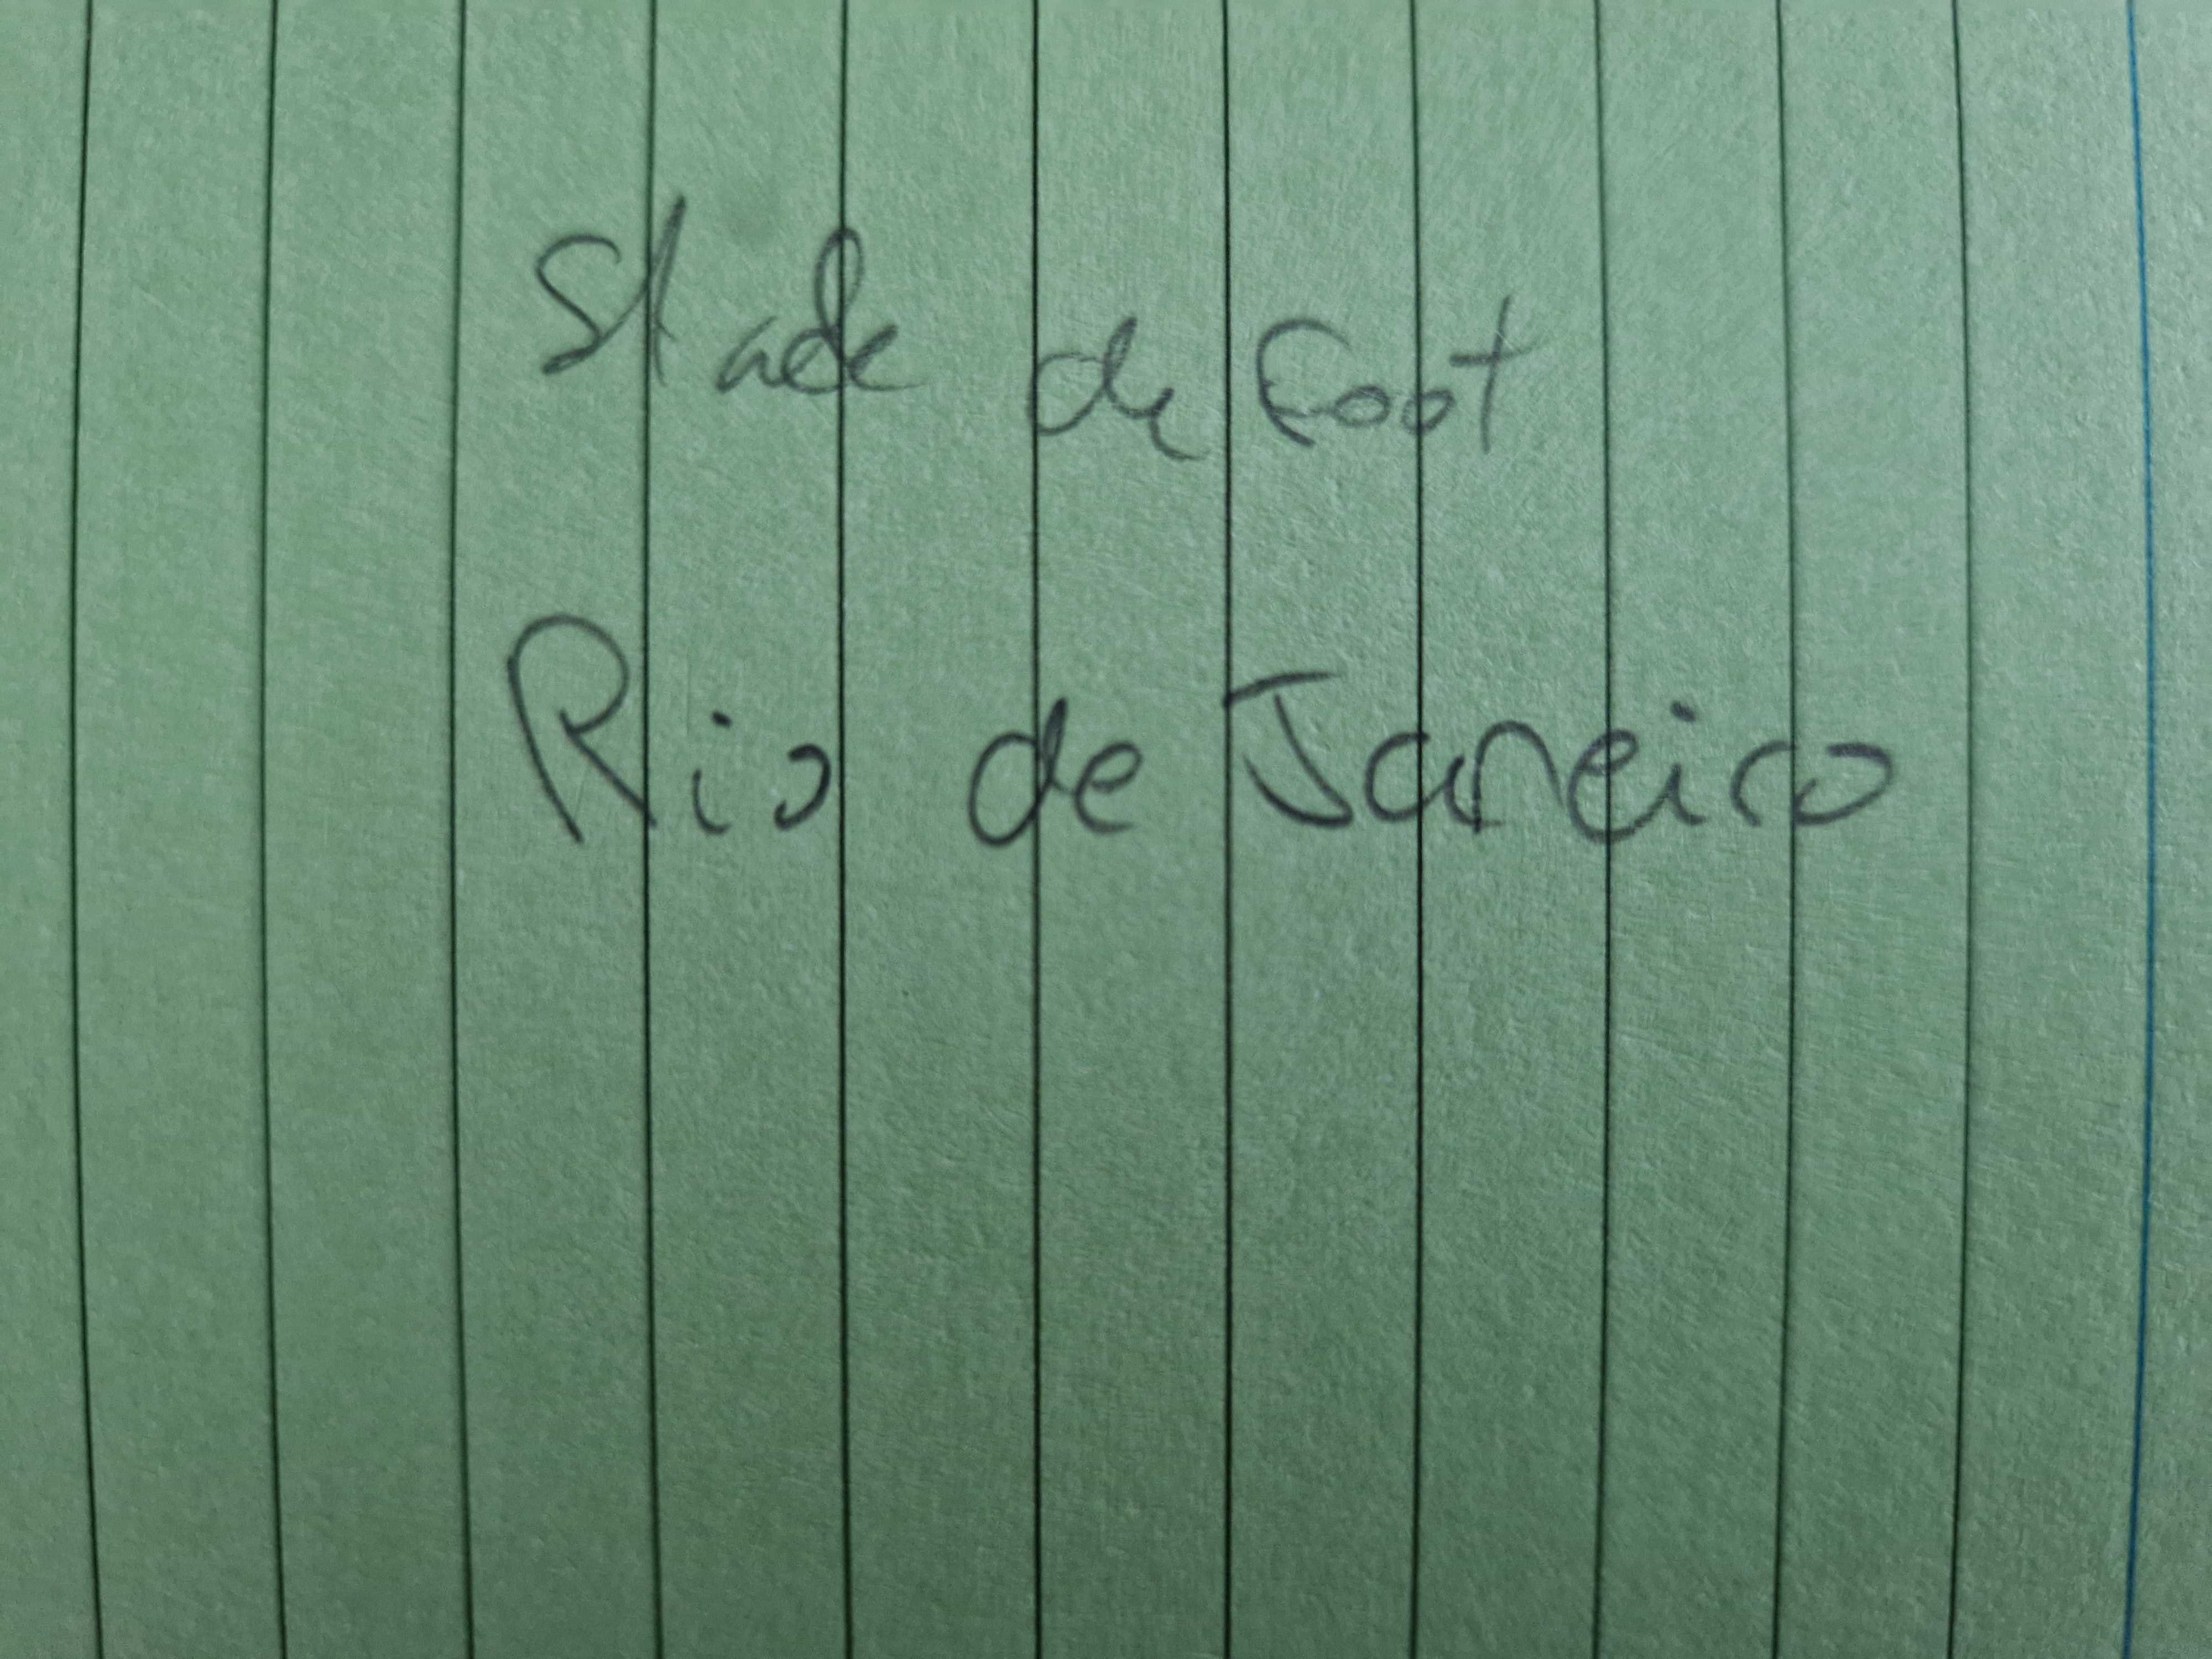 Stade de foot
Rio de Janeiro